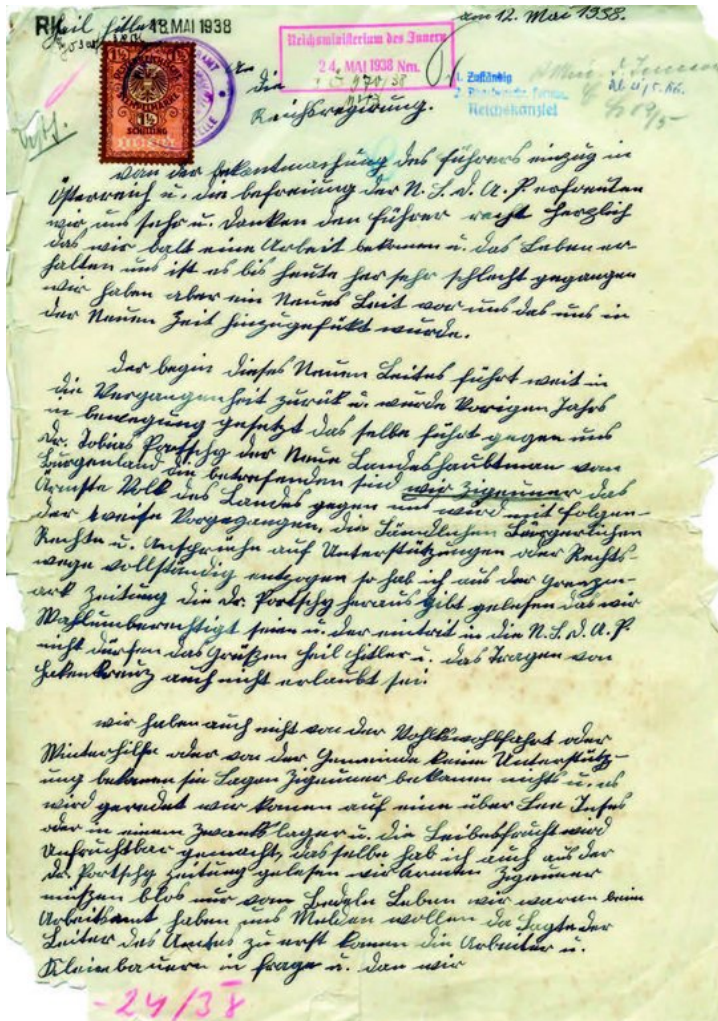 Heil Hitler
RK
18. MAI 1938
am 12. Mai 1938.
Reichsministerium des Innern
24. MAI 1938 Nm.
1½
SCHILLING
An
die
Reichsregierung.
1. Zuständig
Reichskanzlei
von der bekantmachung des führers einzug in
Österreich u. die befreiung der N. S. d. A. P. erfreuten
wir uns sehr u. danken den führer recht herzlich
das wir balt eine Arbeit bekomen u. das Leben er-
halten uns ist es bis heute her sehr schlecht gegangen
wir haben aber ein Neues Leit vor uns das uns in
der Neuen Zeit hinzugefükt wurde.
Der begin dieses Neuen Leites führt weit in
die Vergangenheit zurück u. wurde Vorigen Jahrs
in bewegung gesetzt das selbe führt gegen uns
Dr. Tobias Portschy der Neue Landeshaubtman vom
Burgenland die betrefenden sind wir Zigeuner das
Ärmste Volk des Landes gegen uns wird mit folgen-
der weise Vorgegangen, die Sämdlichen Bürgerlichen
Rechte u. Ansprüche auf Unterstützungen oder Rechts-
wege vollständig entzogen so hab ich aus der Grenzm-
ark Zeitung die Dr. Portschy heraus gibt gelesen das wir
Wahlunberechtigt seien u. der eintrit in die N. S. d. A. P.
nicht dürfen das Grüßen heil hitler u. das Tragen von
hakenkreuz auch nicht erlaubt sei.
wir haben auch nicht von der Vohlkswohlfahrt oder
Winterhilfe oder von der Gemeinde keine Unterstütz-
ung bekamen sie Sagen Zigeuner bekamen nichts u. es
wird geredet wir komen auf eine über See Insel
oder in einem Zwantslager u. die Leibesfrucht werd
Unfruchtbar gemacht, dasselbe hab ich auch aus der
Dr. Portschy Zeitung gelesen wir armen Zigeuner
müßen blos nur vom Bedeln Leben wir waren beim
Arbeitsamt haben uns Melden wollen da Sagte der
Leiter des Amtes zu erst komen die Arbeiter u.
Kleinbauern in frage u. dan wir
-24/38